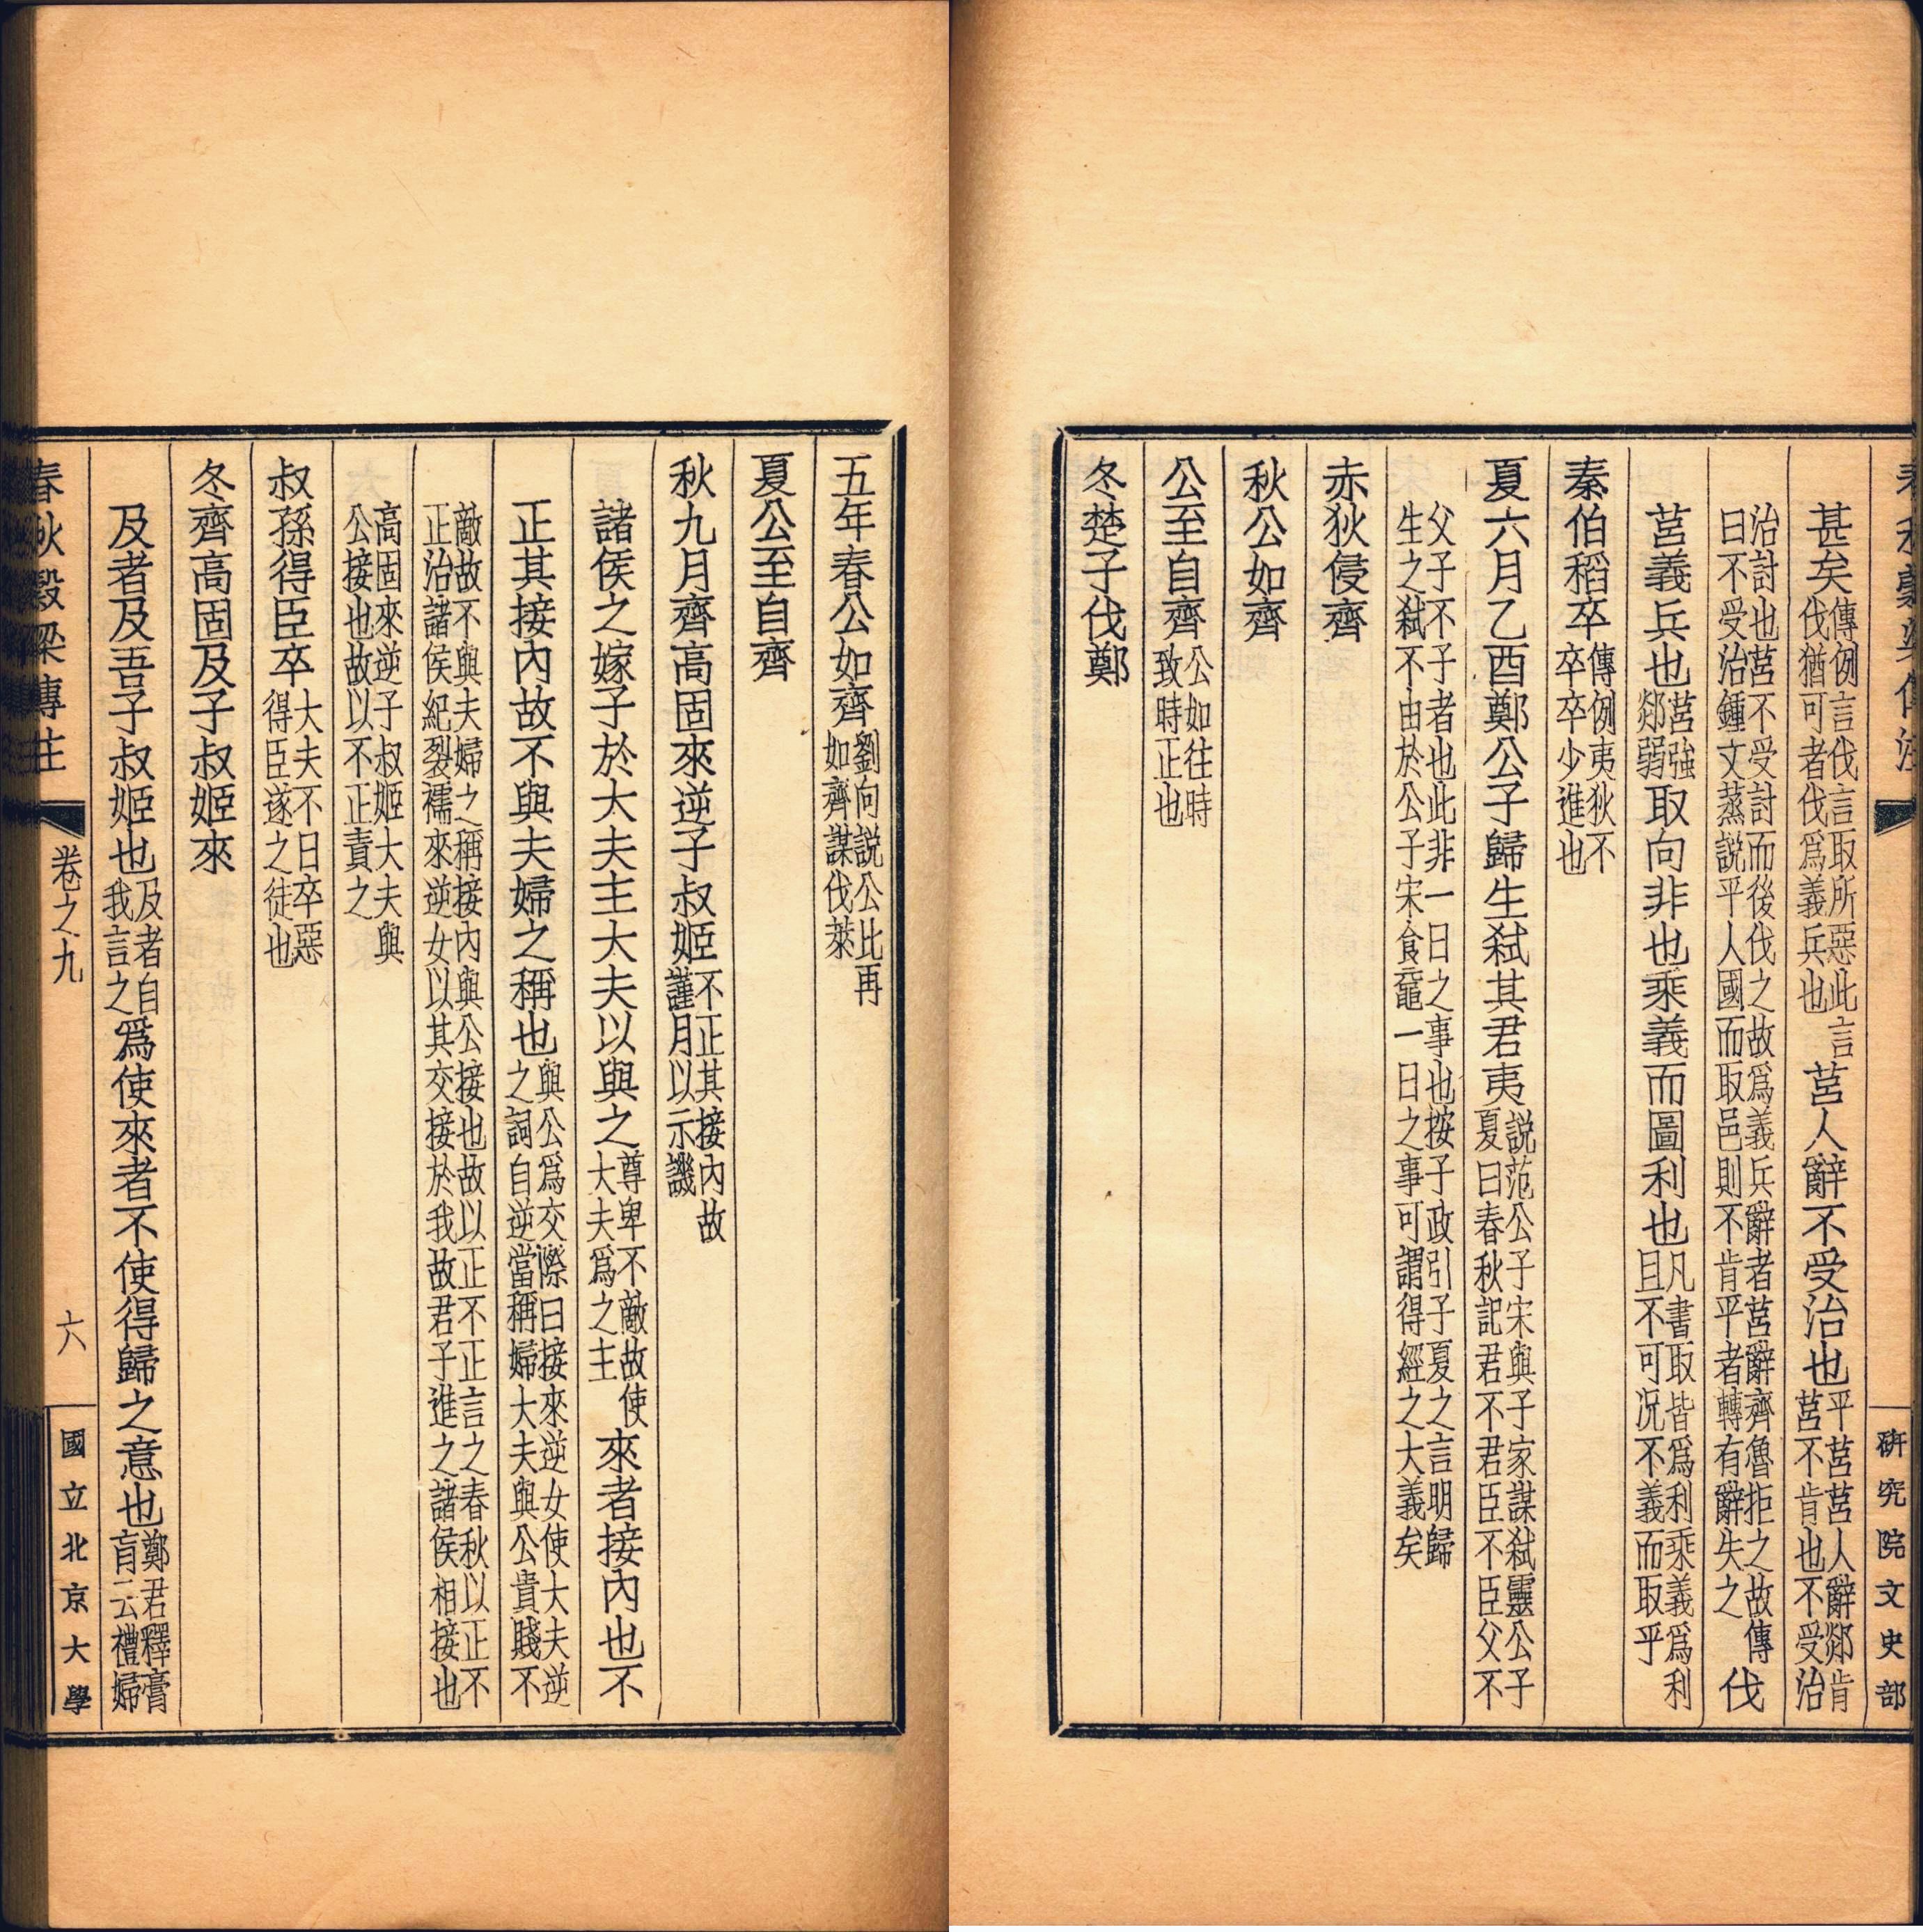 春秋穀梁傳注 研究院文史部
甚矣傳例言伐言取所惡此言伐猶可者伐爲義兵也莒人辭不受治也平莒莒人辭郯肯莒不肯也不受治
治討也莒不受討而後伐之故爲義兵辭者莒辭齊魯拒之故傳曰不受治鍾文蒸説平人國而取邑則不肯平者轉有辭失之伐
莒義兵也莒強郯弱取向非也乘義而圖利也凡書取皆爲利乘義爲利且不可況不義而取乎
秦伯稻卒傳例夷狄不卒卒少進也
夏六月乙酉鄭公子歸生弒其君夷説范公子宋與子家謀弒靈公子夏曰春秋記君不君臣不臣父不
父子不子者也此非一日之事也按子政引子夏之言明歸生之弒不由於公子宋食黿一日之事可謂得經之大義矣
赤狄侵齊
秋公如齊
公至自齊公如往時致時正也
冬楚子伐鄭
五年春公如齊劉向説公比再如齊謀伐萊
夏公至自齊
秋九月齊高固來逆子叔姬不正其接內故謹月以示譏
諸侯之嫁子於大夫主大夫以與之尊卑不敵故使大夫爲之主來者接內也不
正其接內故不與夫婦之稱也與公爲交際曰接來逆女使大夫逆之詞自逆當稱婦大夫與公貴賤不
敵故不與夫婦之稱接內與公接也故以正不正言之春秋以正不正治諸侯紀裂襦來逆女以其交接於我故君子進之諸侯相接也
高固來逆子叔姬大夫與公接也故以不正責之
叔孫得臣卒大夫不日卒惡得臣遂之徒也
冬齊高固及子叔姬來
及者及吾子叔姬也及者自我言之爲使來者不使得歸之意也鄭君釋膏肓云禮婦
春秋穀梁傳注 卷之九 六 國立北京大學